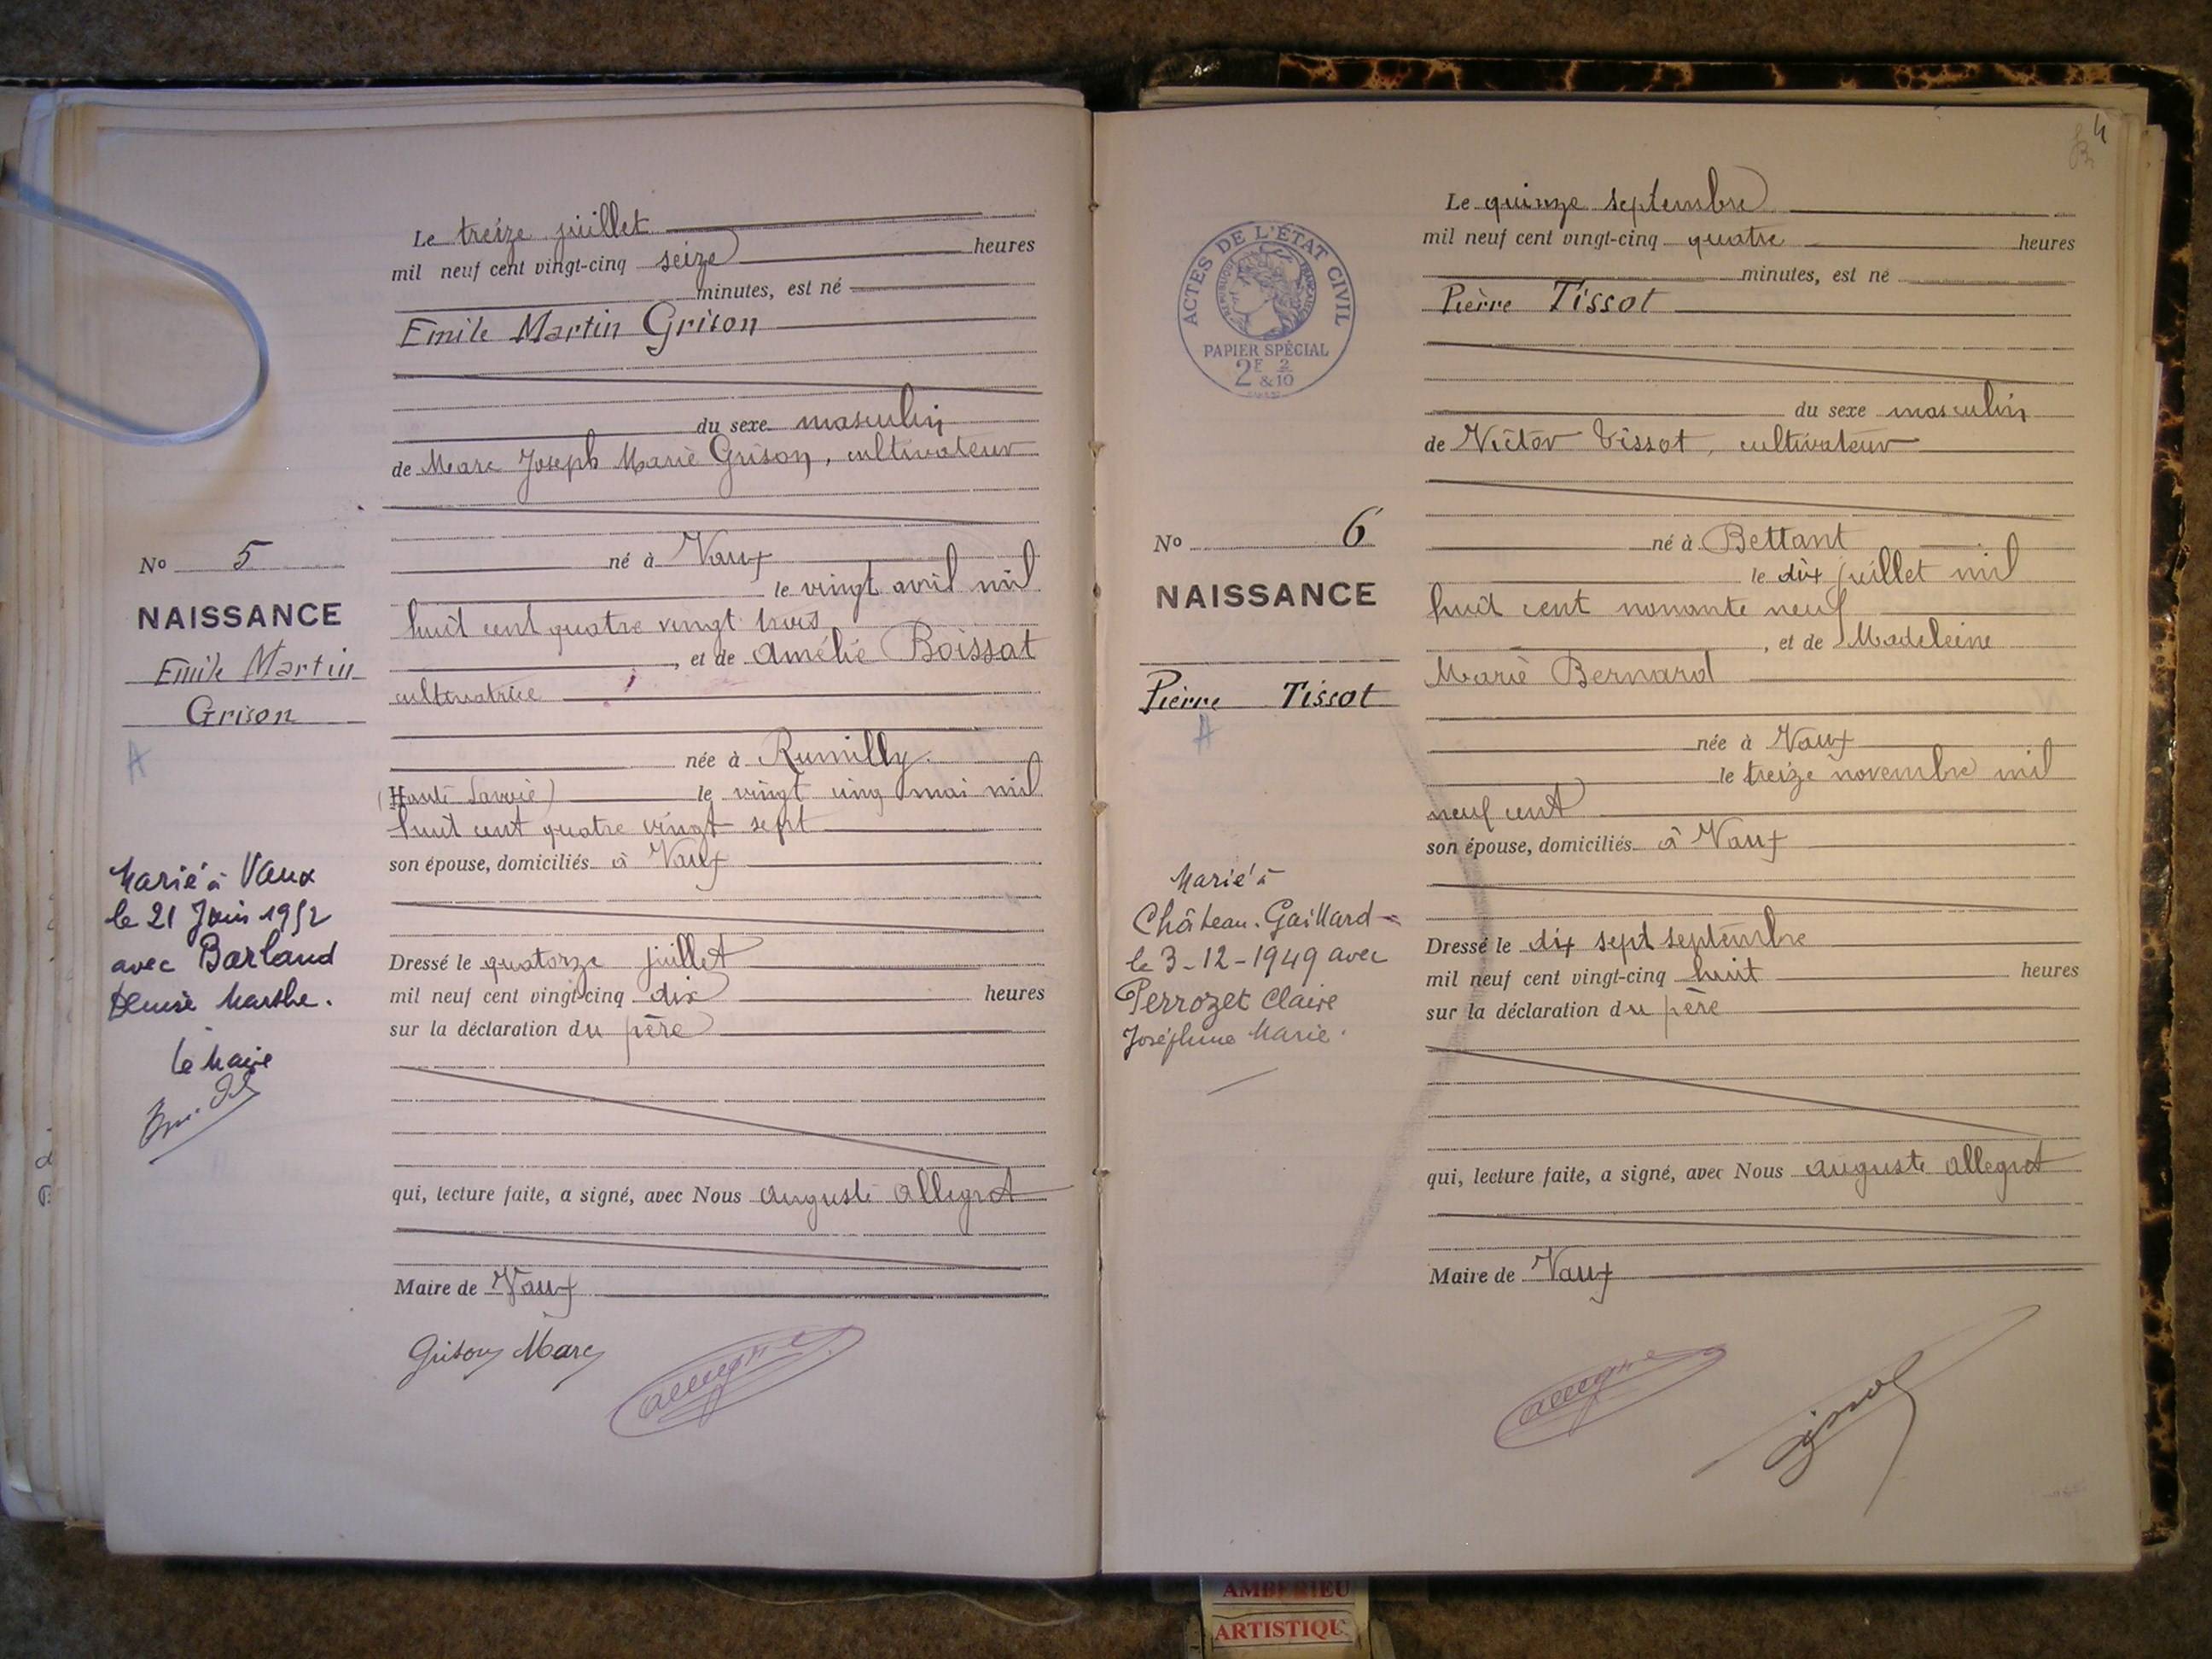 Le treize juillet
mil neuf cent vingt-cinq seize heures
minutes, est né
Emile Martin Grison
du sexe masculin
de Marc Joseph Marie Grison, cultivateur
né à Vaux
le vingt avril mil
huit cent quatre vingt trois
, et de Amélie Boissat
cultivatrice
née à Rumilly
(Haute Savoie) le vingt cinq mai mil
huit cent quatre vingt sept
son épouse, domiciliés à Vaux
Dressé le quatorze juillet
mil neuf cent vingt-cinq dix heures
sur la déclaration du père
qui, lecture faite, a signé, avec Nous Auguste Allegrot
Maire de Vaux
Grison Marc
No 5
NAISSANCE
Emile Martin
Grison
A
Marié à Vaux
le 21 Juin 1952
avec Barland
Denise Marthe.
Le Maire
4
ACTES DE L'ÉTAT CIVIL
RÉPUBLIQUE FRANÇAISE
PAPIER SPÉCIAL
2F 2
& 10
No 6
NAISSANCE
Pierre Tissot
A
Marié à
Château-Gaillard
le 3-12-1949 avec
Perrozet Claire
Joséphine Marie.
Le quinze septembre
mil neuf cent vingt-cinq quatre heures
minutes, est né
Pierre Tissot
du sexe masculin
de Victor Tissot, cultivateur
né à Bettant
le dix juillet mil
huit cent nonante neuf
, et de Madeleine
Marie Bernard
née à Vaux
le treize novembre mil
neuf cent
son épouse, domiciliés à Vaux
Dressé le dix sept septembre
mil neuf cent vingt-cinq huit heures
sur la déclaration du père
qui, lecture faite, a signé, avec Nous Auguste Allegrot
Maire de Vaux
Tissot
AMBERIEU
ARTISTIQU